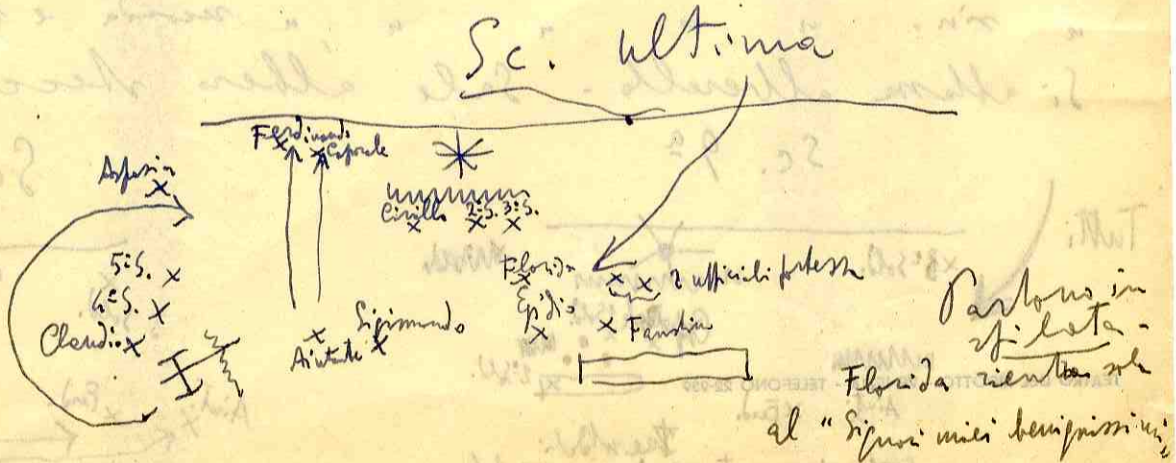 Sc. ultima
Ferdinando
Caporale
Aspasia
Cirillo 2° S. 3° S.
5° S.
4° S.
Claudio
Aiutante
Sigismondo
Florida
Egidio
2 ufficiali fortezza
Faustino
Partono in
sfilata -
Florida rientra sola
al "Signori miei benignissimi"